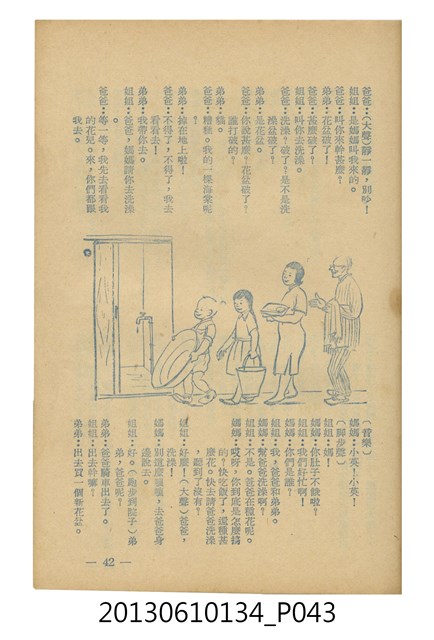 爸爸：（大聲）靜一靜，別吵！
姐姐：是媽媽叫我來的。
爸爸：叫你來幹甚麼？
弟弟：花盆破了！
爸爸：甚麼破了？
姐姐：叫你去洗澡。
爸爸：洗澡？破了？是不是洗
澡盆破了？
弟弟：是花盆。
爸爸：你說甚麼？花盆破了？
誰打破的？
弟弟：貓。
爸爸：啊！我的一棵海棠呢
？
弟弟：掉在地上啦！
爸爸：不得了，不得了，我去
看看去！
弟弟：我帶你去。
姐姐：爸爸，媽媽請你去洗澡
。
爸爸：等一等，我先去看看我
的花兒。來，你們都跟
我去。
（音樂）
媽媽：小英！小英！
（脚步聲）
姐姐：媽！
媽媽：你肚子不餓啦？
姐姐：我們好忙啊！
媽媽：你們是誰？
姐姐：我，爸爸和弟弟。
媽媽：幫爸爸洗澡啊？
姐姐：不是。爸爸在種花呢。
媽媽：哎呀，你到底是怎麼搞
的？快吃飯了，還種甚
麼花。快去請爸爸洗澡
，聽到了沒有？
姐姐：好麼！（大聲）爸爸，
洗澡！
媽媽：別這麼嚷嚷，去爸爸身
邊說去。
姐姐：好。（跑步到院子）弟
弟，爸爸呢？
弟弟：爸爸騎車出去了。
姐姐：出去幹嘛？
弟弟：出去買一個新花盆。
— 42 —
20130610134_P043